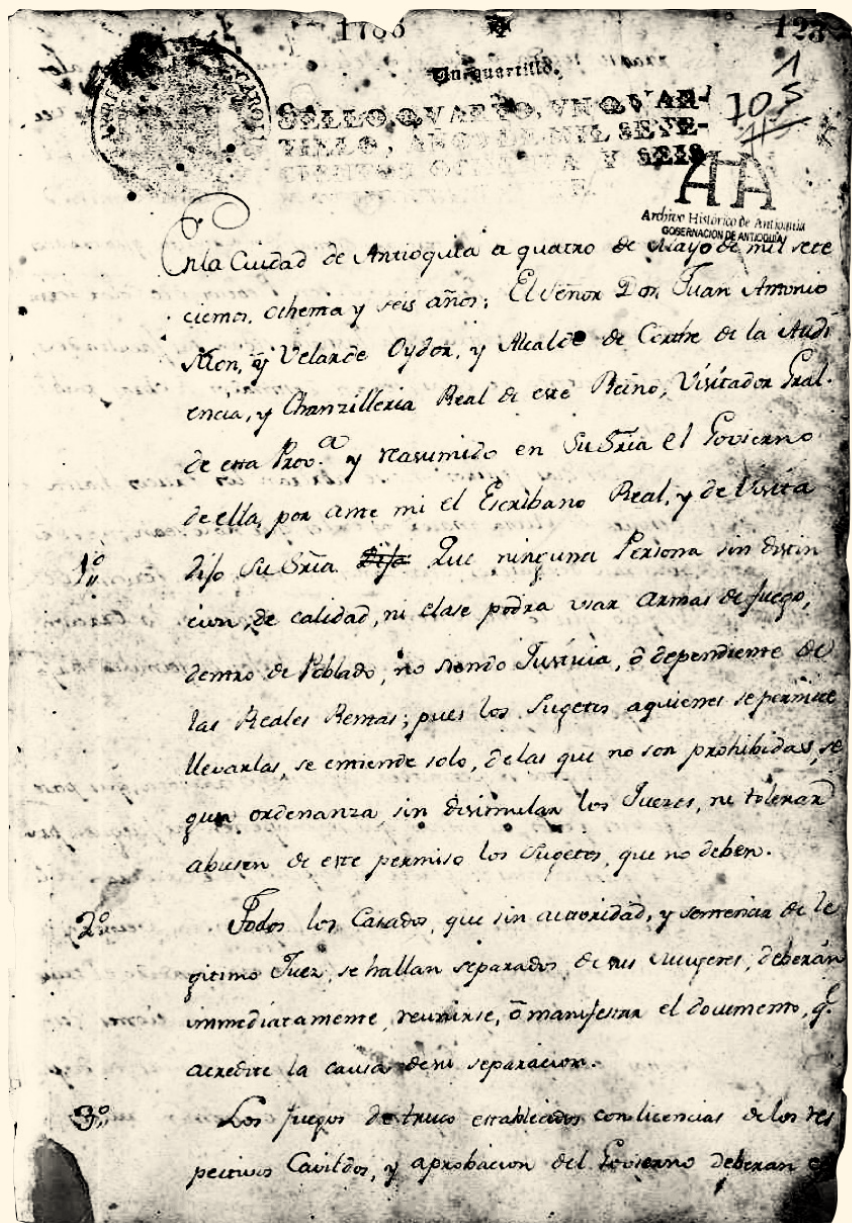 1786
123
Un quartillo.
1
105
SELLO QVARTO, VN QVAR-
TILLO, AÑOS DE MIL SETE-
CIENTOS OCHENTA Y SEIS
CAROL
AHA
Archivo Histórico de Antioquia
GOBERNACIÓN DE ANTIOQUIA
En la Ciudad de Antioquia a quatro de Mayo de mil sete
cientos, ochenta y seis años; El Señor Don Juan Antonio
Mon, y Velarde Oydor, y Alcalde de Corthe de la Audi
encia, y Chanzilleria Real de este Reino, Visitador Gral.
de esta Prov.a y reasumido en Su Sria el Govierno
de ella, por ante mi el Escribano Real, y de Visita
1º dijo Su Sria Dijo Que ninguna Persona sin distin
cion, de calidad, ni clase podra usar armas de fuego,
dentro de Poblado, no siendo Justicia, ô dependiente de
las Reales Rentas; pues los Sugetos aquienes se permite
llevarlas, se entiende solo, delas que no son prohibidas, se
gun ordenanza, sin disimular los Juezes, ni tolerar
abusen de este permiso los Sugetos, que no deben.
2º Todos los Casados, que sin autoridad, y sentencia de le
gitimo Juez, se hallan separados de sus mugeres, deberán
immediatamente, reunirse, ô manifestar el documento, q.e
acredite la causa desu separacion.
3º Los juegos de truco establecidos con licencias delos res
pectivos Cavildos, y aprobacion del Govierno deberan